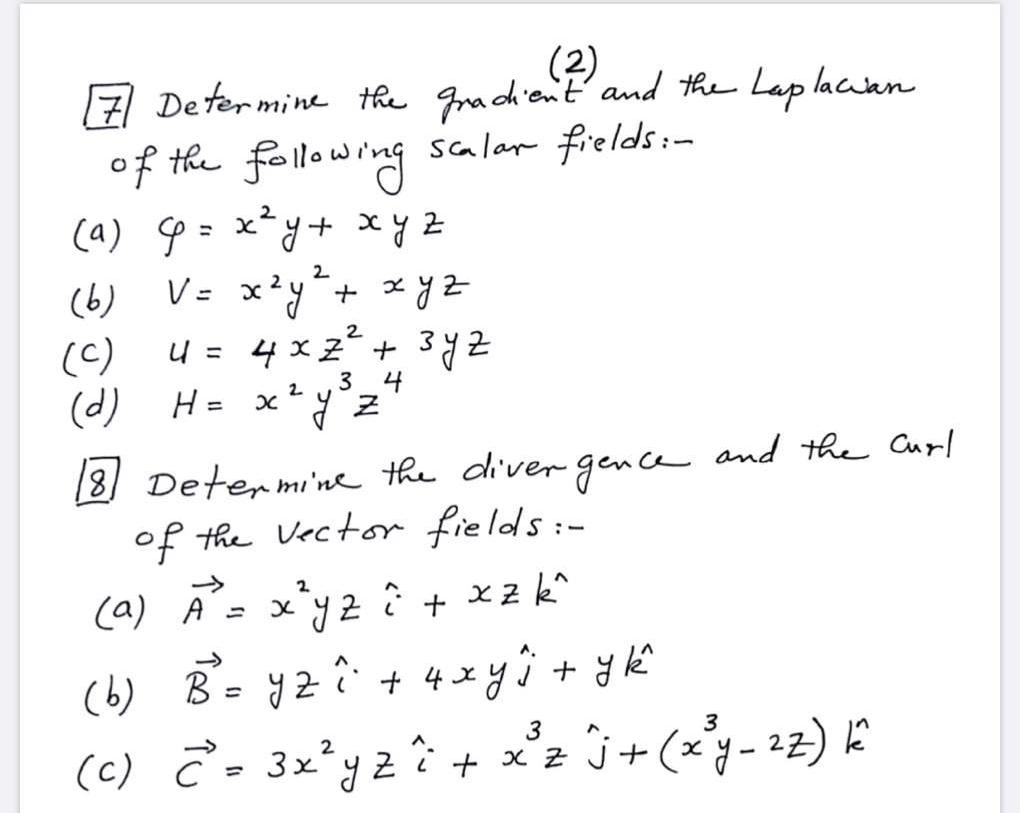 (2)
7 Determine the gradient and the Laplacian
of the following scalar fields:-
(a) φ = x²y + xyz
(b) V = x²y² + xyz
(c) u = 4xz² + 3yz
(d) H = x²y³z⁴
8 Determine the divergence and the Curl
of the Vector fields:-
(a) A⃗ = x²yz î + xz k̂
(b) B⃗ = yz î + 4xy ĵ + y k̂
(c) C⃗ = 3x²yz î + x³z ĵ + (x³y - 2z) k̂